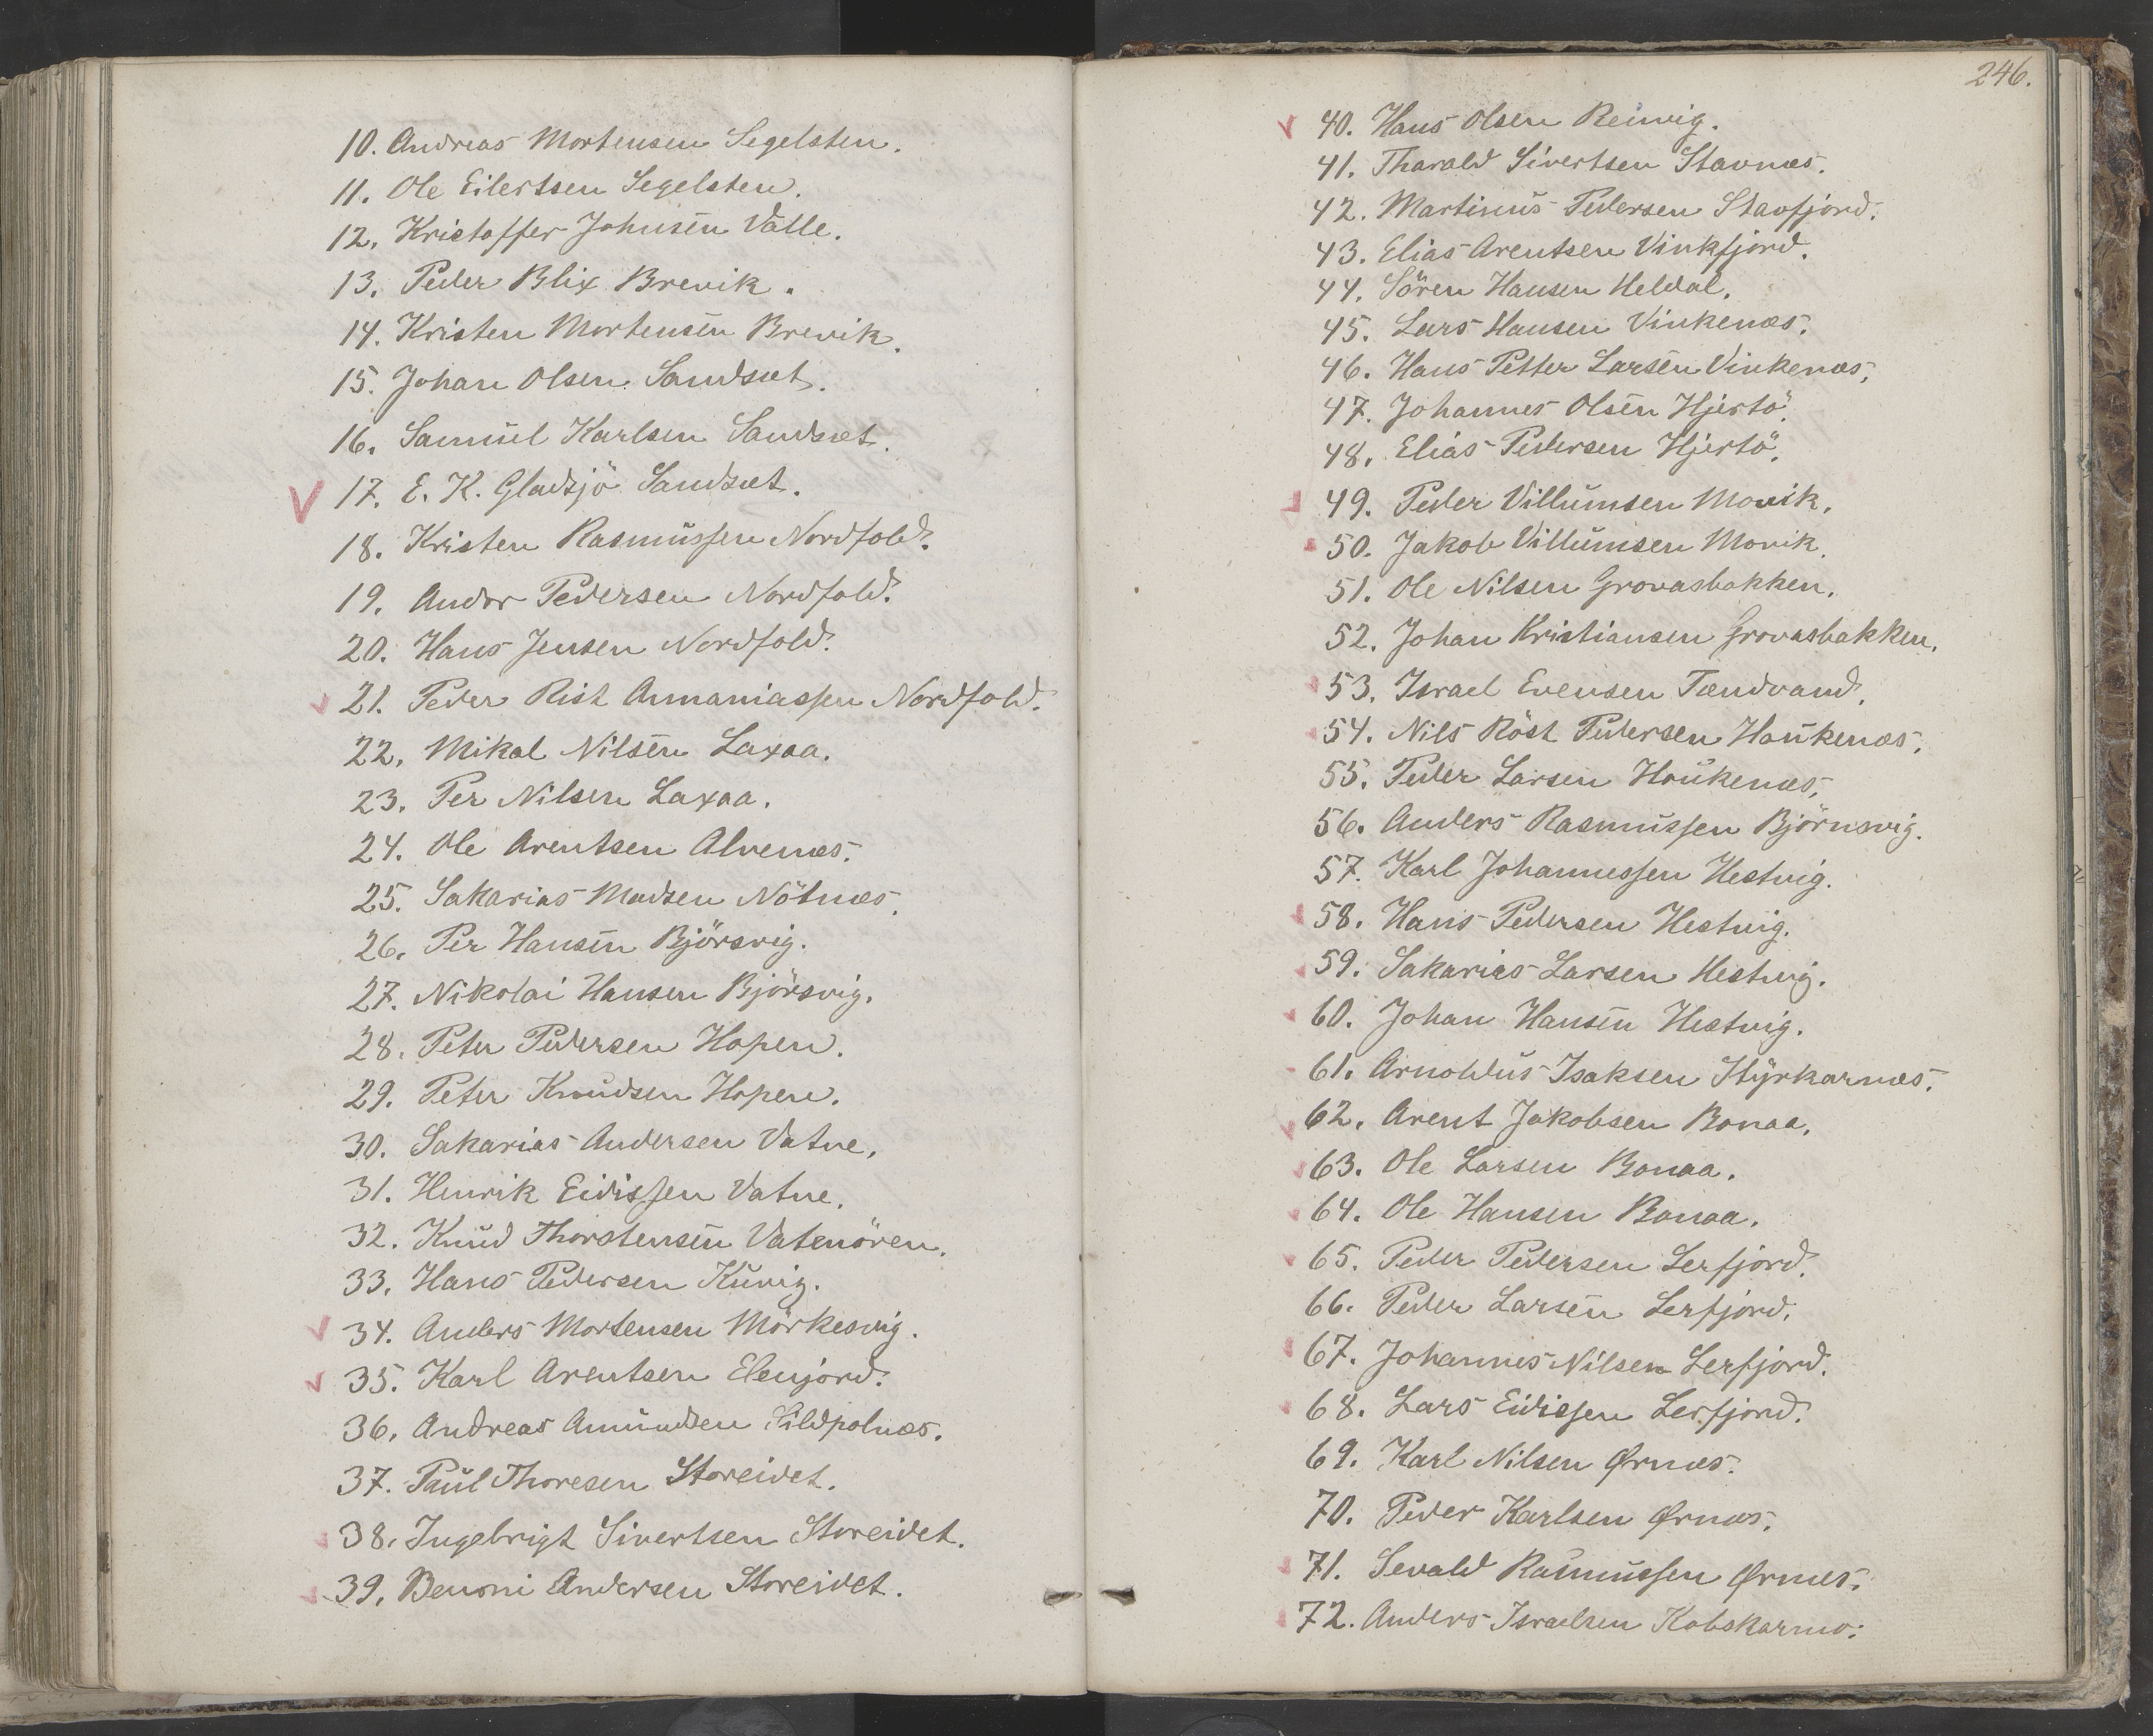 10. Andreas Mortensen Segelsten.
11. Ole Eilertsen Segelsten.
12. Kristoffer Johnsen Valle.
13. Peder Blix Brevik.
14. Kristen Mortensen Brevik.
15. Johan Olsen Sandsæt.
16. Samuel Karlsen Sandsæt.
17. E. K. Gladsjö Sandsæt.
18. Kristen Rasmussen Nordfold.
19. Andor Pedersen Nordfold.
20. Hans Jensen Nordfold.
21. Peder Rist Annaniassen Nordfold.
22. Mikal Nilsen Laxaa.
23. Per Nilsen Laxaa.
24. Ole Arentsen Alvenæs.
25. Sakarias Madsen Nötnæs.
26. Per Hansen Björsvig.
27. Nikolai Hansen Björsvig.
28. Peter Pedersen Hopen.
29. Peter Knudsen Hopen.
30. Sakarias Andersen Vatne.
31. Henrik Eidissen Vatne.
32. Knud Thorstensen Vatnören.
33. Hans Pedersen Kuvig.
34. Anders Mortensen Mörkesvig.
35. Karl Arentsen Elenjord.
36. Andreas Amundsen Sildpolnæs.
37. Paul Thoresen Storeidet.
38. Ingebrigt Sivertsen Storeidet.
39. Benoni Andersen Storeidet.
246.
40. Hans Olsen Reinvig.
41. Tharald Sivertsen Stavnæs.
42. Martinus Pedersen Stavfjord.
43. Elias Arentsen Vinkfjord.
44. Sören Hansen Heldal.
45. Lars Hansen Vinkenæs.
46. Hans Petter Larsen Vinkenæs.
47. Johannes Olsen Hjertö.
48. Elias Pedersen Hjertö.
49. Peder Villumsen Movik.
50. Jakob Villumsen Movik.
51. Ole Nilsen Grovasbakken.
52. Johan Kristiansen Grovasbakken.
53. Israel Evensen Tændvand.
54. Nils Röst Pedersen Haukenæs.
55. Peder Larsen Haukenæs.
56. Anders Rasmussen Björnsvig.
57. Karl Johannessen Hestvig.
58. Hans Pedersen Hestvig.
59. Sakarias Larsen Hestvig.
60. Johan Hansen Hestvig.
61. Arnoldus Isaksen Styrkarnæs.
62. Arent Jakobsen Bonaa.
63. Ole Larsen Bonaa.
64. Ole Hansen Bonaa.
65. Peder Pedersen Lerfjord.
66. Peder Larsen Lerfjord.
67. Johannes Nilsen Lerfjord.
68. Lars Eidissen Lerfjord.
69. Karl Nilsen Ørnæs.
70. Peder Karlsen Ørnæs.
71. Sevald Rasmussen Ørnæs.
72. Anders Israelsen Kobskarmo.